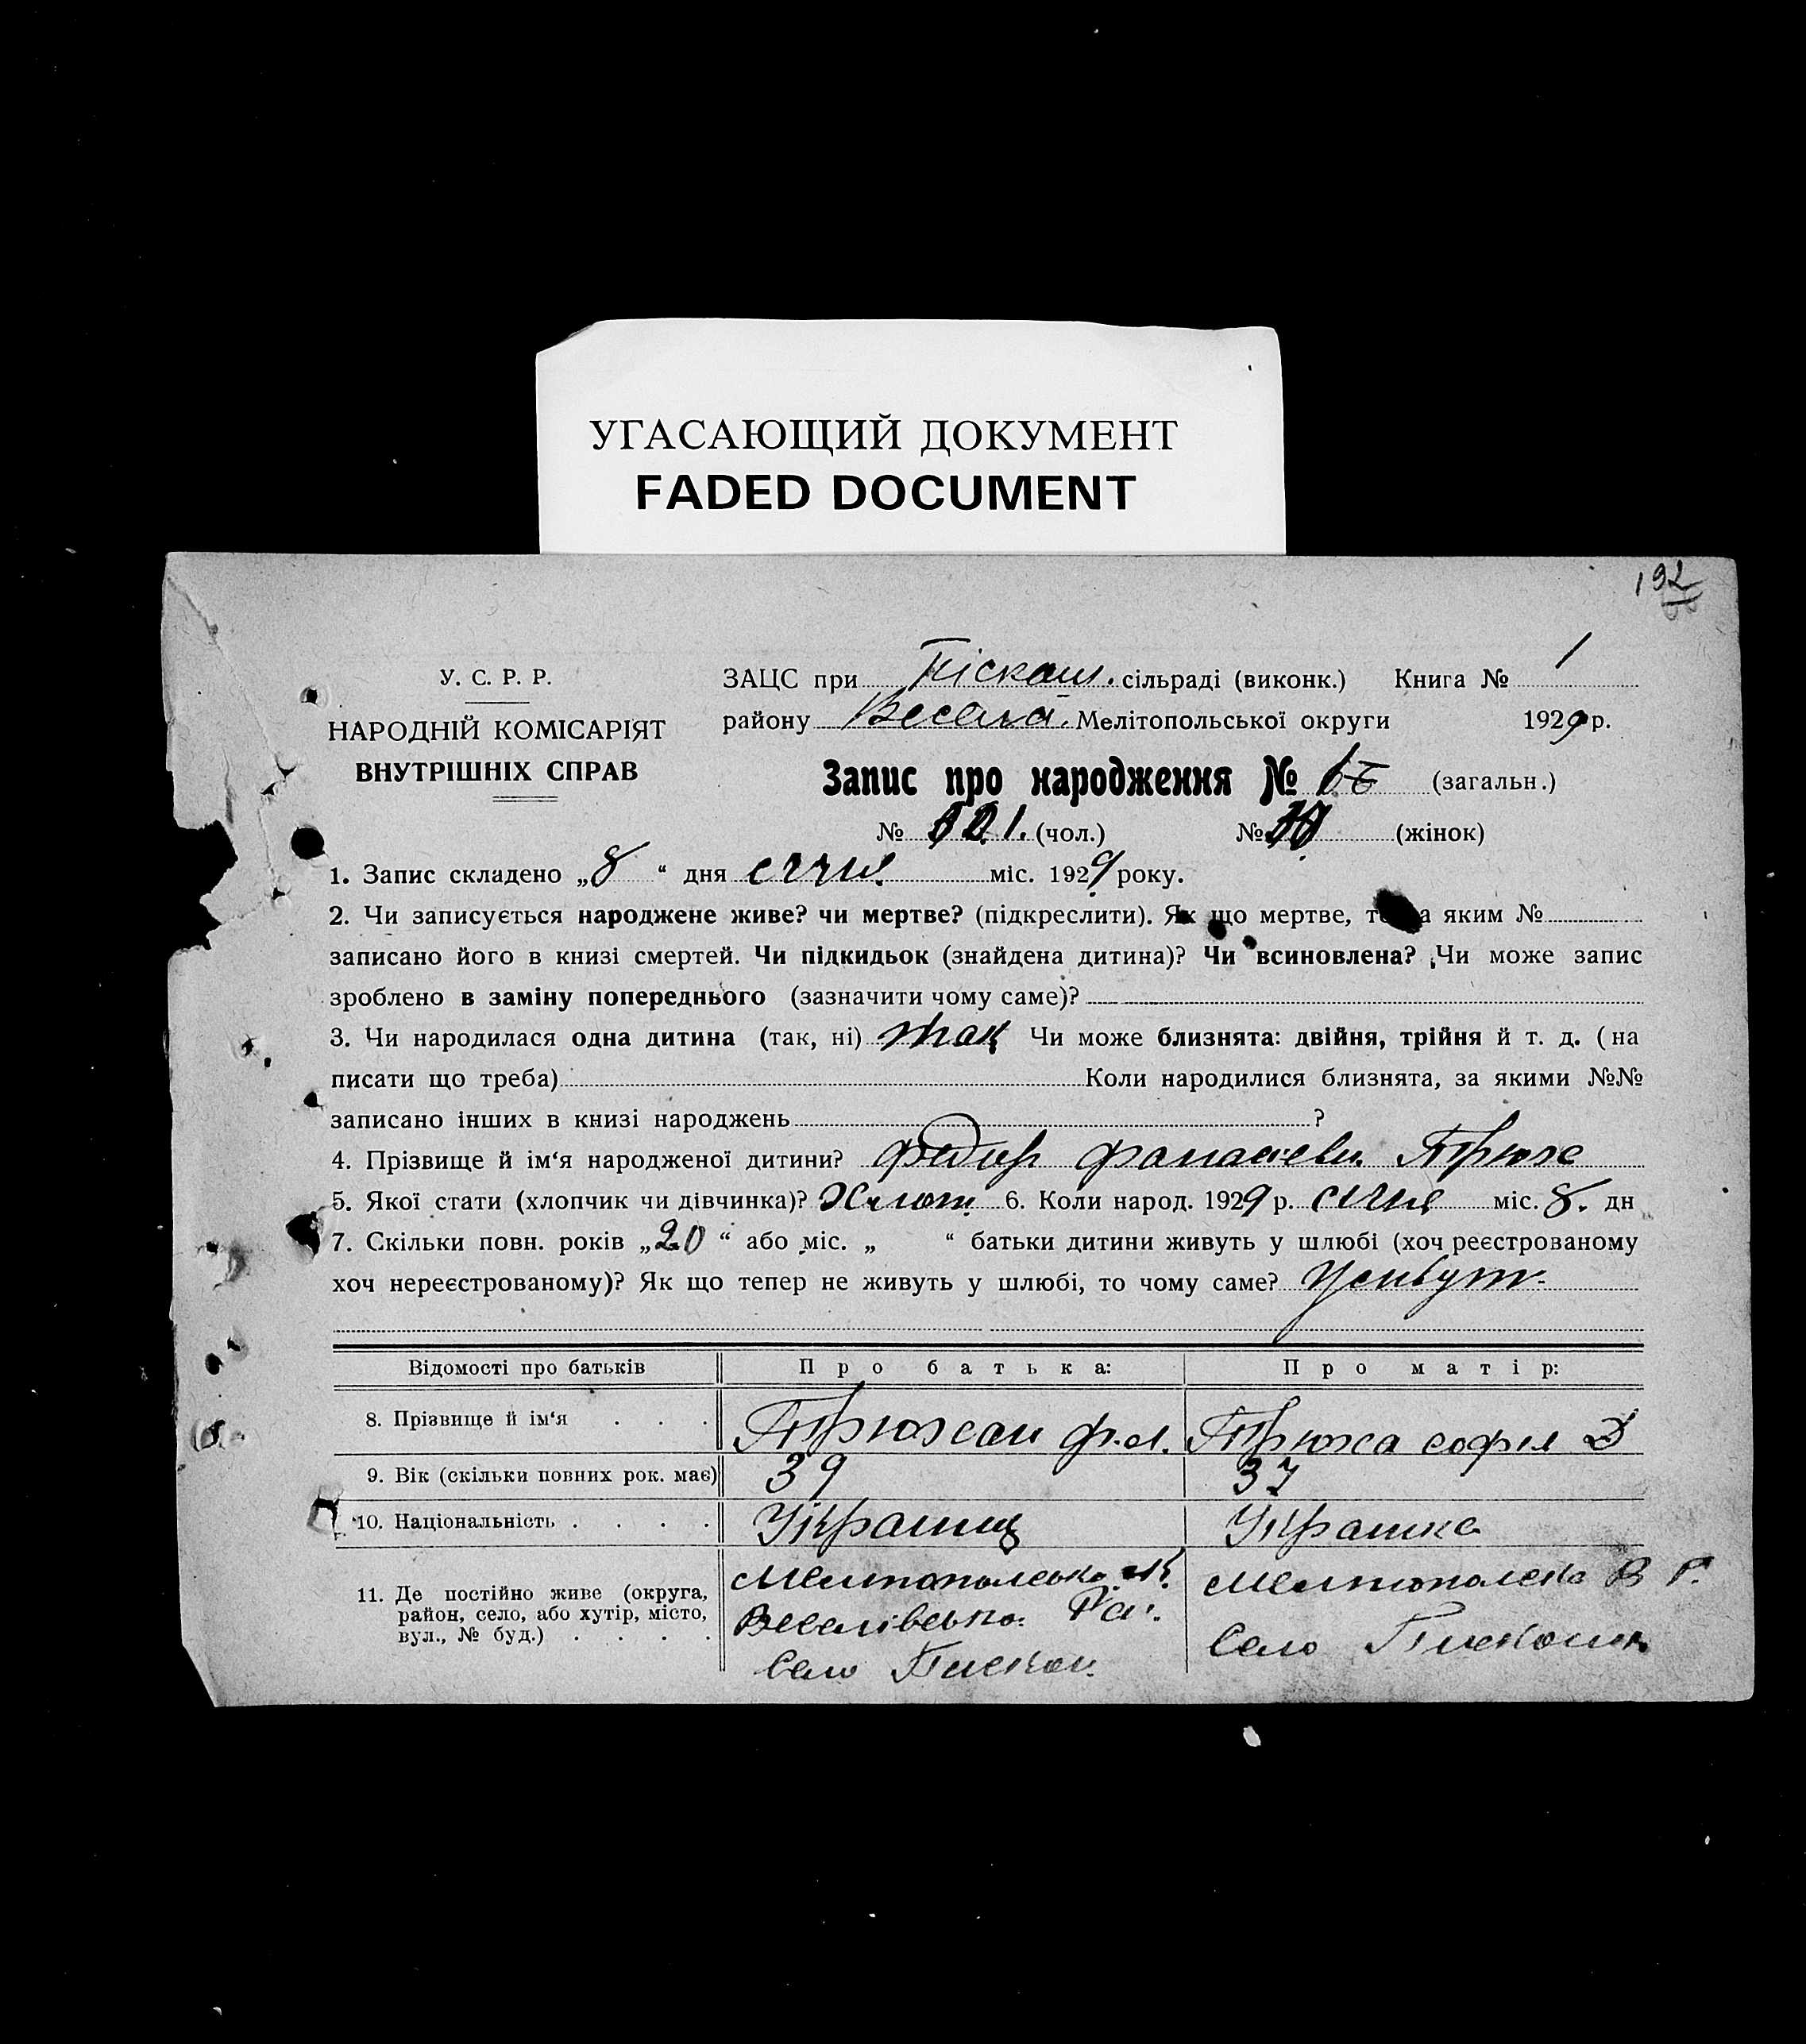 УГАСАЮЩИЙ ДОКУМЕНТ
FADED DOCUMENT
192
У. С. Р. Р.
НАРОДНІЙ КОМІСАРІЯТ
ВНУТРІШНІХ СПРАВ
ЗАЦС при Піскош. сільраді (виконк.) Книга № 1
району Весела. Мелітопольської округи 1929 р.
Запис про народження № (загальн.)
№ 121. (чол.) № (жінок)
1. Запис складено „8 “ дня січня міс. 1929 року.
2. Чи записується народжене живе? чи мертве? (підкреслити). Як що мертве, то а яким №
записано його в книзі смертей. Чи підкидьок (знайдена дитина)? Чи всиновлена? Чи може запис
зроблено в заміну попереднього (зазначити чому саме)?
3. Чи народилася одна дитина (так, ні) так Чи може близнята: двійня, трійня й т. д. (на
писати що треба) Коли народилися близнята, за якими №№
записано інших в книзі народжень ?
4. Прізвище й ім‘я народженої дитини? Федир Фанасіеви. Трюхе
5. Якої стати (хлопчик чи дівчинка)? Хлоп. 6. Коли народ. 1929 р. січня міс. 8. дн
7. Скільки повн. років „20 “ або міс. „ “ батьки дитини живуть у шлюбі (хоч реєстрованому
хоч нереєстрованому)? Як що тепер не живуть у шлюбі, то чому саме?
Відомості про батьків Про батька: Про матір:
8. Прізвище й ім‘я . . . Трюхан Трюха софія Д
9. Вік (скільки повних рок. має) 39 37
10. Національність . . . . Україниц Українка
11. Де постійно живе (округа,
район, село, або хутір, місто,
вул., № буд.) . . . .
Мелитопольсько
Веселівсько. Рай.
Село Пискош.
Мелитопольско В Р.
Село Пискоши